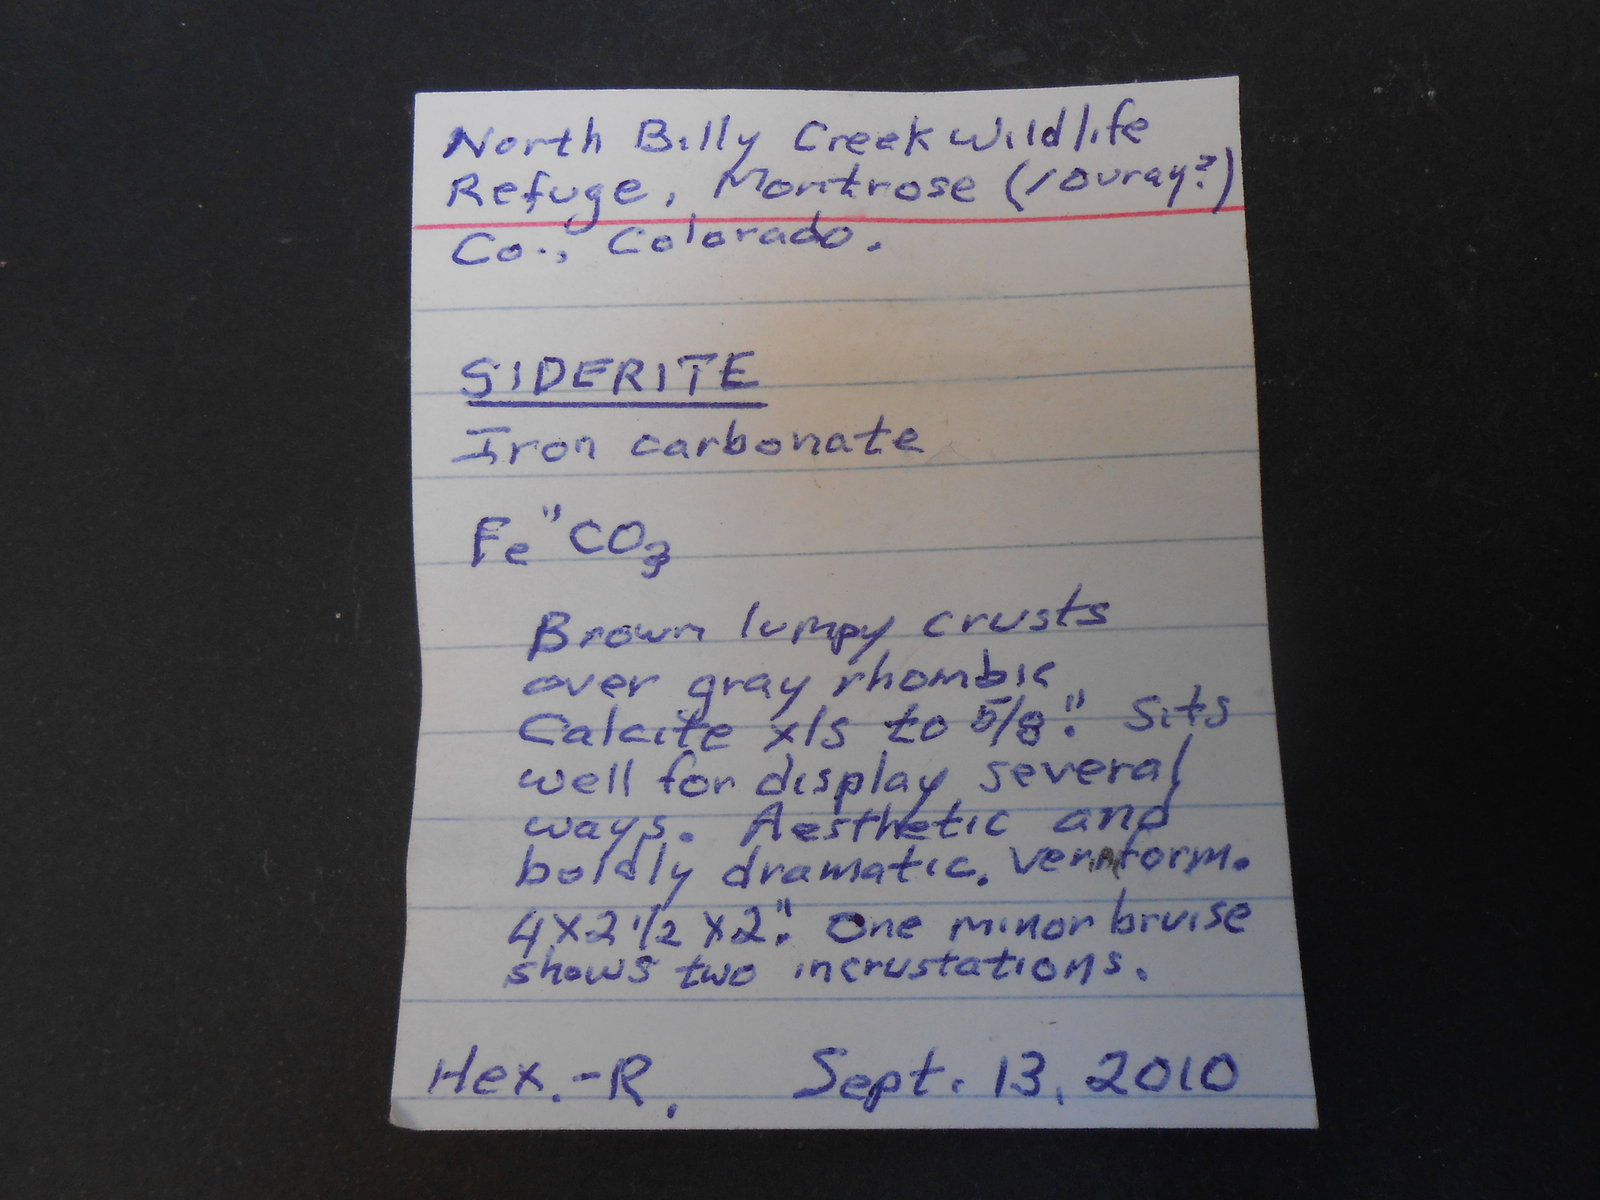 North Billy Creek Wildlife
Refuge, Montrose (/Ouray?)
Co., Colorado.
SIDERITE
Iron carbonate
Fe"CO₃
Brown lumpy crusts
over gray rhombic
Calcite xls to 5/8". Sits
well for display several
ways. Aesthetic and
boldly dramatic.
4 X 2 1/2 X 2". One minor bruise
shows two incrustations.
Hex.-R. Sept. 13, 2010